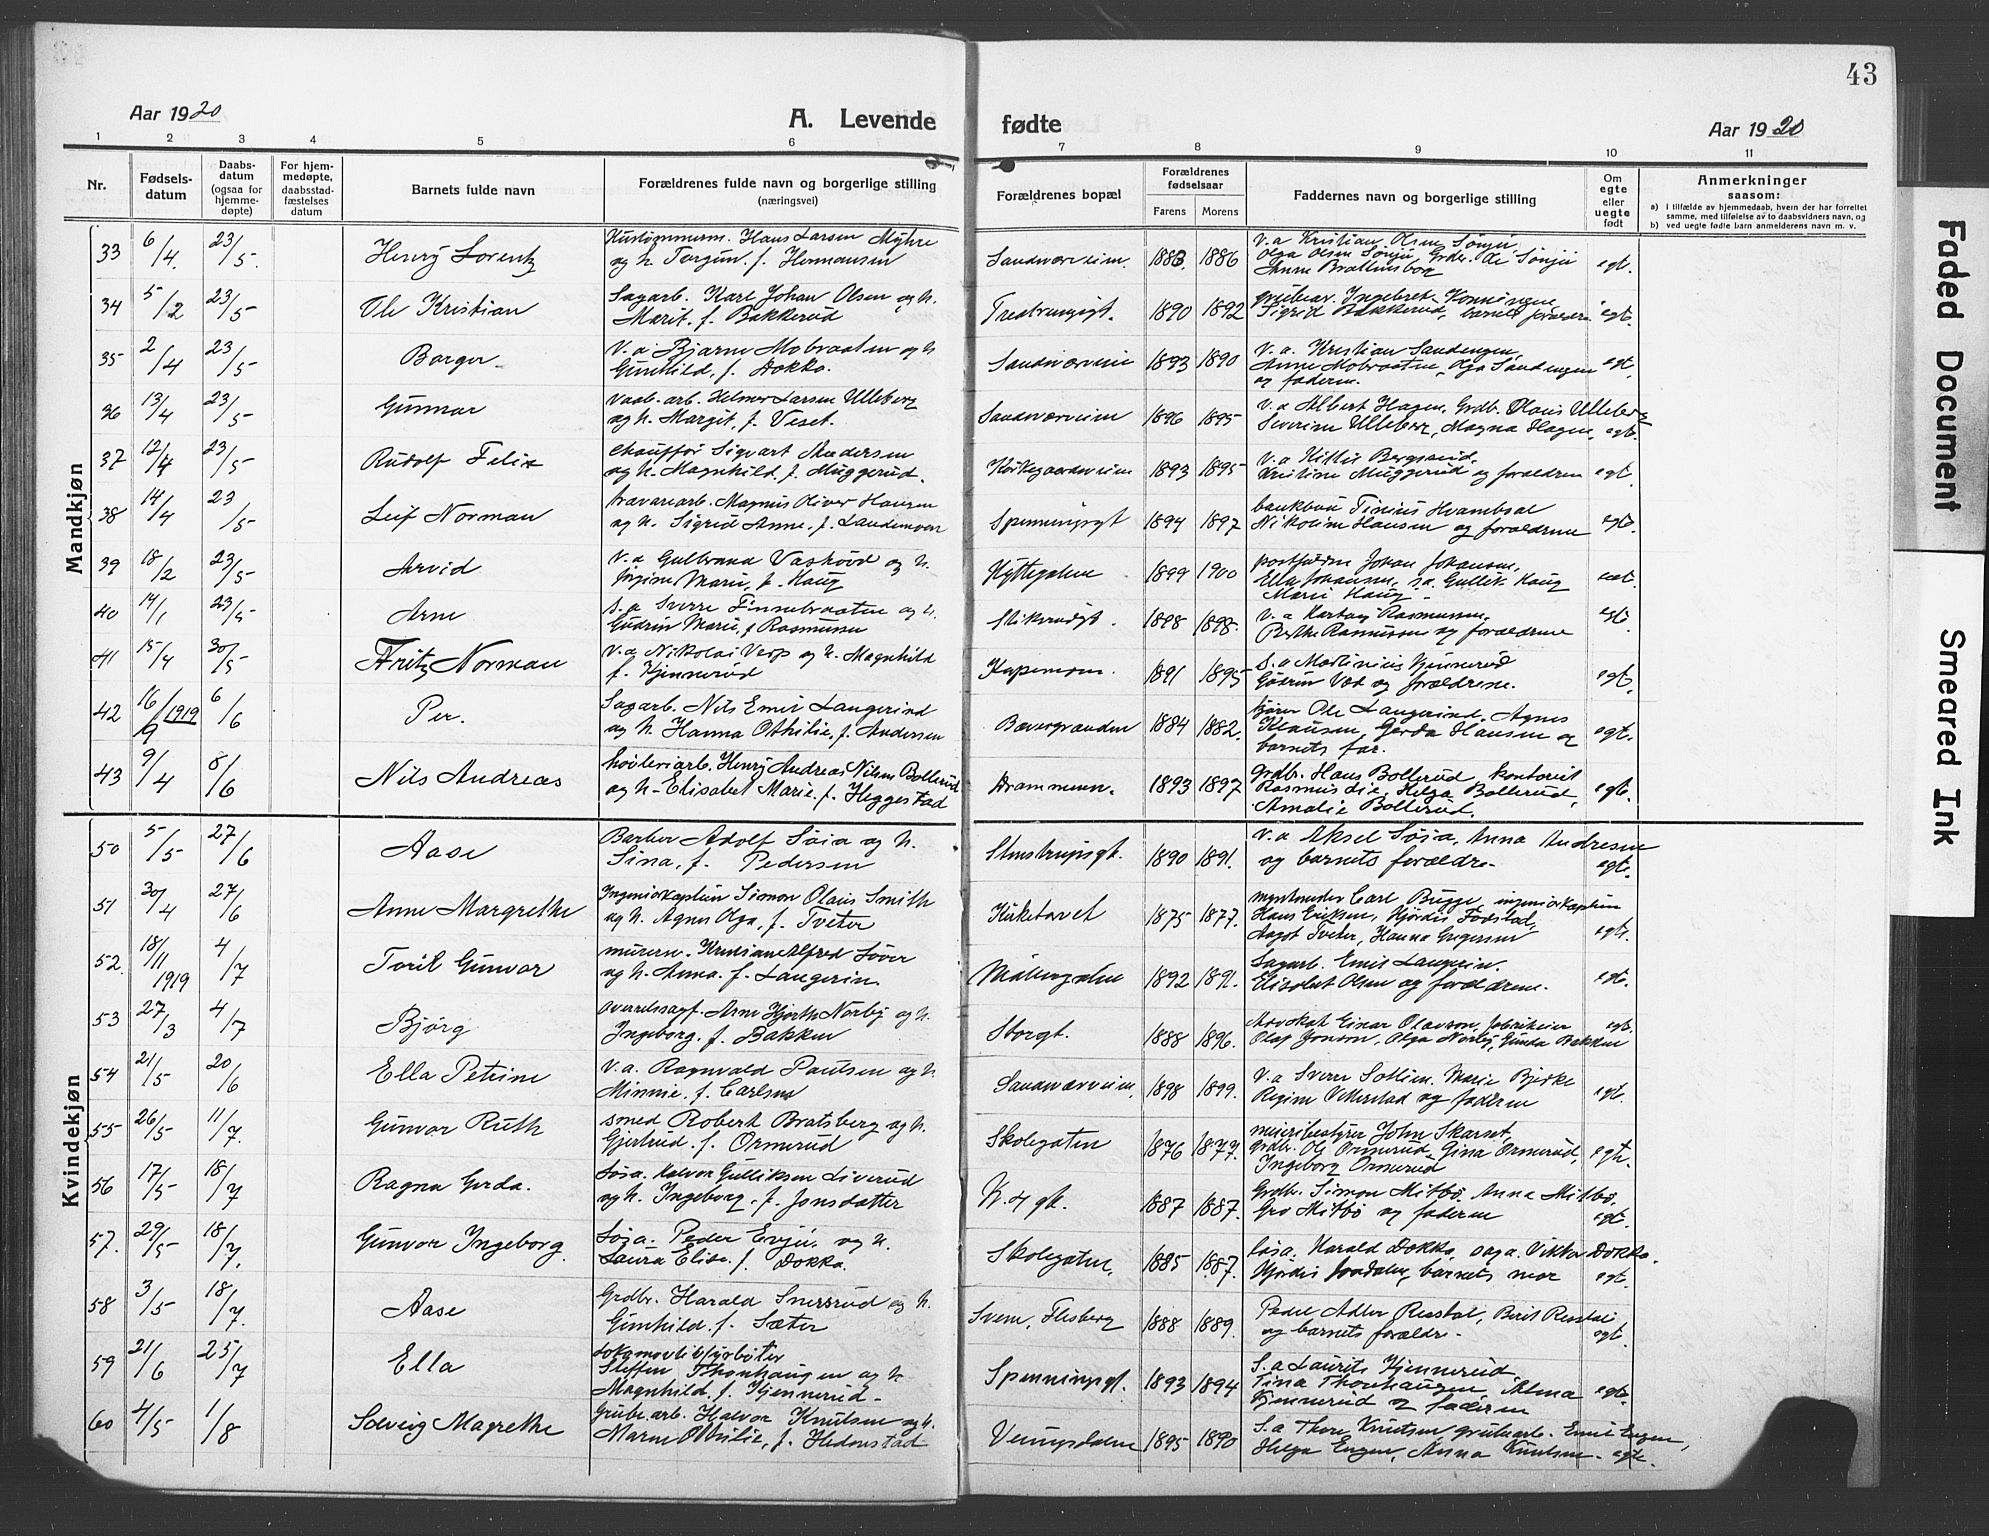 43
Aar 1920
A. Levende fødte
Aar 1920
1 2 3 4 5 6 7 8 9 10 11
Nr.
Fødsels-
datum
Daabs-
datum
(ogsaa for
hjemme-
døpte)
For hjem-
medøpte,
daabsstad-
fæstelses
datum
Barnets fulde navn
Forældrenes fulde navn og borgerlige stilling
(næringsvei)
Forældrenes bopæl
Forældrenes
fødselsaar
Farens Morens
Faddernes navn og borgerlige stilling
Om
egte
eller
uegte
født
Anmerkninger
saasom:
a) i tilfælde av hjemmedaab, hvem der har forrettet
samme, med tilføielse av to daabsvidners navn, og
b) ved uegte fødte barn anmelderens navn m. v.
Mandkjøn
33 6/4. 23/5. Henry Lorentz
Hans Larsen Myhre
og h. Torgun. f. Hermansen
Sandsværveien. 1883. 1886
v.a Kristian Olsen Sønju
Olga Olsen Sønju, Grdbr. Ole Sønju
Anne egt.
34 5/2 23/5 Ole Kristian
Sagarb. Karl Johan Olsen og h.
Marit. f. Bakkerud
1890 1892
Ingebret
Sigrid Bakkerud, barnets forældre egt.
35 2/4 23/5 Borger
v.a. Bjarne Mobraaten og h
Gunhild, f. Dokka.
Sandsværveien 1893 1890
v.a. Kristian Sandengen,
Anne Mobraaten, Olga Sandengen
og faderen. egt.
36 13/4 23/5 Gunnar
vaab. arb. Helmer Larsen Ulleberg
og h. Margit, f. Veset.
Sandsværveien 1896 1895
v.a Albert Hagen, Grdb. Olaus Ulleberg
Severine Ulleberg, Magna Hagen, egt.
37 12/4 23/5 Rudolf Felix
chauffør Sigvart Andersen
og h. Magnhild. f. Muggerud.
Kirkegaardsveien 1893 1895
v.a Kittil Bergsrud.
Kristine Muggerud og forældrene egt.
38 14/4 23/5 Leif Norman
Magnus Oliver Hansen
og h. Sigrid Anne, f. Landemoen
Spenningsgt 1894 1897
Tinius
Nikoline Hansen og forældrene egt.
39 18/2 23/5 Arvid
v.a Gulbrand og h.
Jørgine Marie, f. Haug
Hyttegaten 1899 1900
postfører Johan Johansen,
Ella Johansen, s.a. Gullik Haug
Marie Haug. egt.
40 14/1 23/5 Arne
s.a Sverre Finnebraaten og h.
Gudrun Marie, f Rasmussen
1898 1898.
v.a Rasmussen,
Berthe Rasmussen og forældrene egt.
41 15/4 30/5 Fritz Norman
v.a Nikolai og h. Magnhild
f. Kjennerud
Kapermoen. 1891 1895
s.a Martinius Kjennerud
Gudrun og forældrene. egt.
42 16/9 1919 6/6 Per.
Sagarb. Nils Emil Langerud
og h. Hanna Othilie, f. Andersen
1884 1882.
Ole Langerud. Agnes
Klausen, Gerda Hansen og
barnets far. egt.
43 9/4 8/6 Nils Andreas
høvleriarb. Henry Andreas Nilsen Bollerud
og h. Elisabet Marie. f. Heggestad
Drammen. 1893 1897
grdbr. Hans Bollerud, kontorist
Rasmus Lie, Helga Bollerud,
Amalie Bollerud. egt.
Kvindekjøn
50 5/5 27/6 Aase
Barber Adolf Søia og h.
Sina, f. Pedersen
Stenstrupsgt. 1890 1891.
v.a Aksel Søia, Anna Andresen
og barnets forældre. egt.
51 30/4 27/6 Anne Margrethe
Ingeniørkaptein Simon Olaus Smith
og h. Agnes Olga, f. Tveter
Kirketorvet 1875 1877.
Carl Bugge, ingeniørkaptein
Hans Eriksen, Hjørdis Fodstad,
Aagot Tveter, Hanna Gregersen egt.
52. 18/11 1919 4/7 Toril Gunvor
murerm. Kristian Alfred Løver
og h. Anna. f. Langerin.
1892 1891.
Sagarb. Emil Langerin.
Elisabet Olsen og forældrene. egt.
53 27/3 4/7 Bjørg
overretssagf. Arne Hjorth Norby og h.
Ingeborg. f. Bakken
Storgt. 1888 1896.
Advokat Einar Olavson, fabrikeier
Olaf Jonson, Olga Norby, Gunda Bakken egt.
54 21/5 20/6 Ella Petrine
v.a. Ragnvald Paulsen og h
Minnie. f. Carlsen
Sandsværveien. 1898 1899.
v.a Sverre Solliem. Marie Bjerke
Regine Vetterstad og faderen egt.
55 26/5 11/7. Gunvor Ruth
smed Robert Bratsberg og h.
Gjertrud. f. Ormerud
Skolegaten 1876 1877.
meieribestyrer John Skarset,
grdbr. Ole Ormerud, Gina Ormerud,
Ingeborg Ormerud egt.
56 17/5 18/7 Ragna Gerda.
Løsa. Halvor Gulliksen Liverud
og h. Ingeborg. f. Jonsdatter
N. 4 gt. 1887 1887.
Grdbr. Simon Mitbø. Anna Mitbø.
Gro Mitbø og faderen egt.
57. 29/5 18/7. Gunvor Ingeborg.
Løsa. Peder Evju. og h.
Laura Elise. f. Dokka.
Skolegaten. 1885 1887.
løsa. Harald Dokka, saga. Viktor Dokka.
Hjørdis barnets mor egt.
58 3/5 18/7. Aase
Grdbr. Harald Snersrud og h.
Gunhild. f. Sæter
Svene, Flesberg 1888 1889.
Peder Adler Berit
og barnets forældre. egt.
59 21/6 25/7 Ella
Lokomotivfyrbøter
Steffen Thorhaugen og h
Magnhild, f. Kjennerud.
Spenningsgt. 1893 1894
S.a Laurits Kjennerud
Tina Thorhaugen, Alma
Kjennerud og faderen egt.
60 4/5 1/8 Solveig Magrethe
Grubearb. Halvor Knutsen og h.
Othilie, f. Hedenstad
1895 1890
S.a Thore Knutsen, grubearb. Emil Engen,
Helga Engen, Anna Knutsen. egt.
Faded Document
Smeared Ink